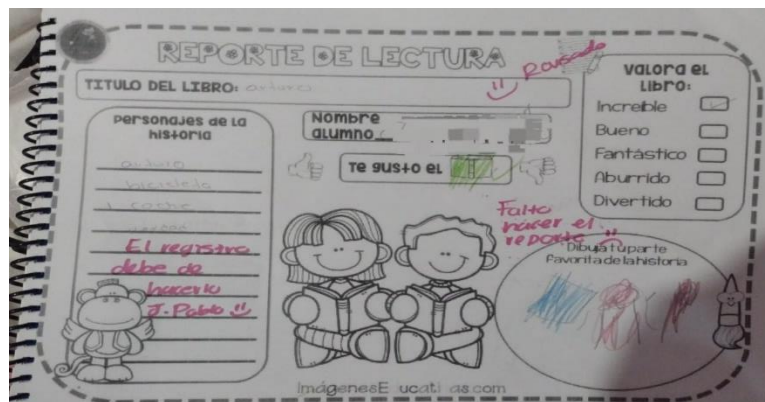 REPORTE DE LECTURA
Revisado
TITULO DEL LIBRO: arturo
Valora el
LIBRO:
Increíble
Bueno
Fantástico
Aburrido
Divertido
Personajes de la
historia
arturo
bicicleta
coche
El registro
debe de
hacerlo
J. Pablo
Nombre
alumno
Te gusto el
Falto
hacer el
reporte
Dibuja tu parte
favorita de la historia